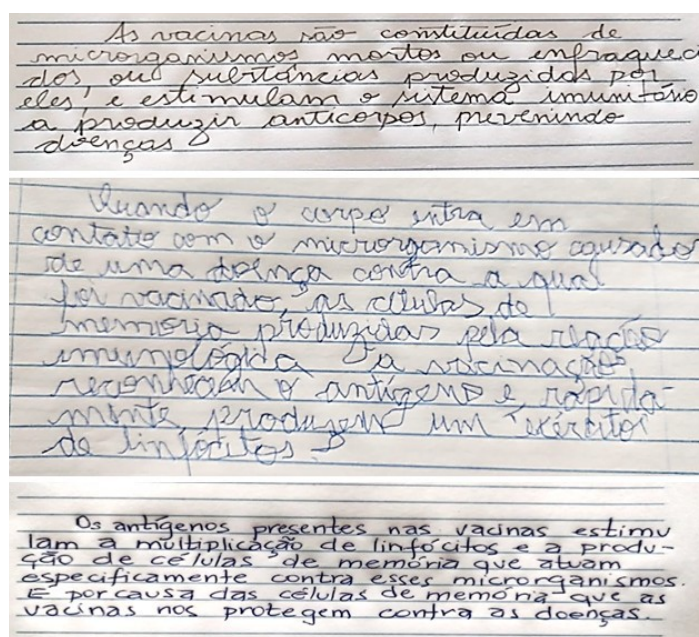 As vacinas são constituídas de
microrganismos mortos ou enfraqueci
dos, ou substâncias produzidas por
eles, e estimulam o sistema imunitário
a produzir anticorpos, prevenindo
doenças
Quando o corpo entra em
contato com o microrganismo causador
de uma doença contra a qual
foi vacinado, as células de
memória produzidas pela reação
imunológica à vacinação,
reconhecem o antígeno e, rapida-
mente, produzem um "exército"
de linfócitos.
Os antígenos presentes nas vacinas estimu
lam a multiplicação de linfócitos e a produ-
ção de células de memória que atuam
especificamente contra esses microrganismos.
É por causa das células de memória que as
vacinas nos protegem contra as doenças.